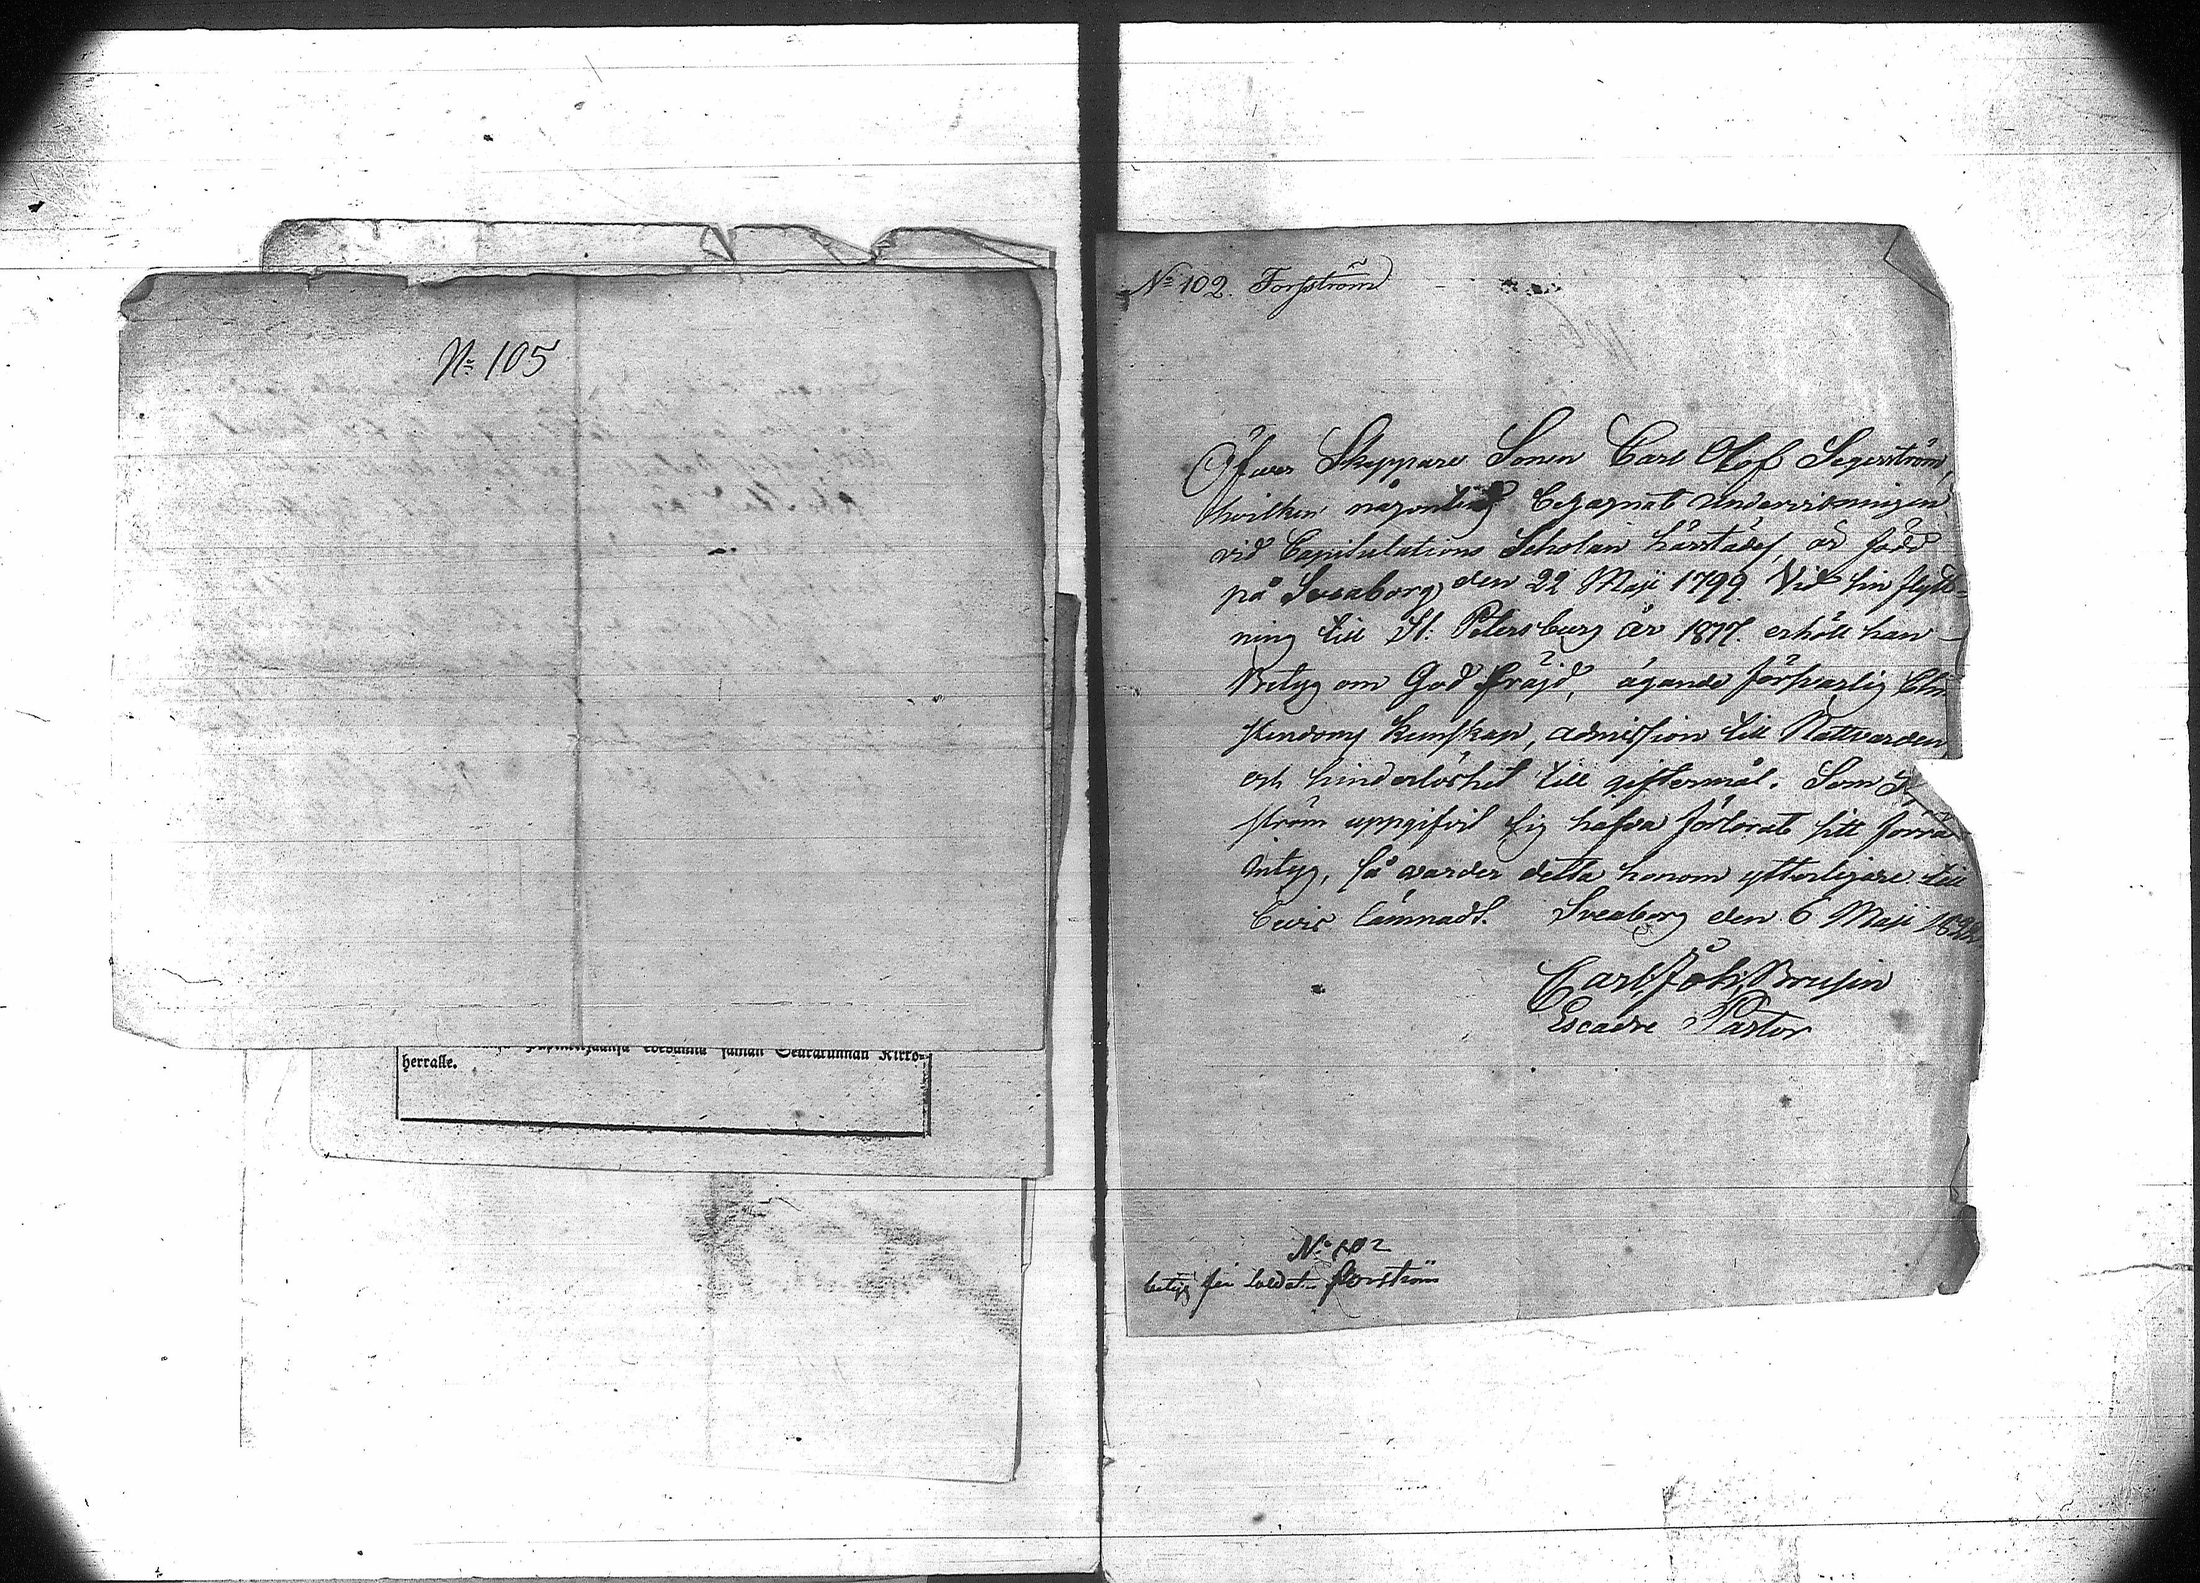 № 105
herralle.
№ 102. Forsström
Öfwer Skeppare Sonen Carl Olof Segerström,
hvilken någontid begagnat undervisningen
vid Capitulations Scholan härstädes, är född
på Sveaborg den 22 Maji 1799. Vid sin flytt-
ning till St. Petersburg år 1817. erhöll han
Betyg om God fräjd, ägande försvarlig Chri
stendoms kunskap, admission till Nattvarden
och hinderlöshet till giftermål. Som S
ström uppgifvit sig hafva förlorat sitt förra
intyg, så warder detta honom ytterligare till
bevis lämnadt. Sveaborg den 6 Maji
Carl Joh. Brusiin
Escadre Pastor
№ 102
betyg för Soldat Forström